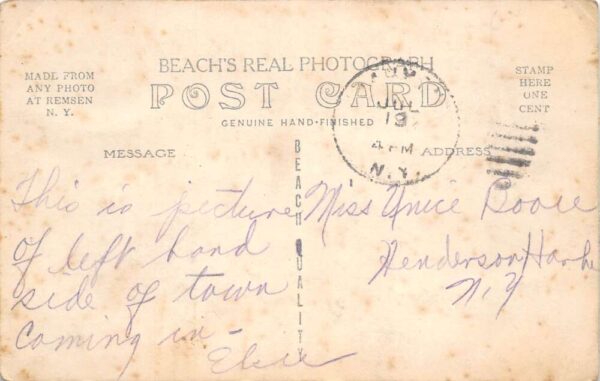 BEACH'S REAL PHOTOGRAPH
MADE FROM
ANY PHOTO
AT REMSEN
N. Y.
POST CARD
GENUINE HAND-FINISHED
STAMP
HERE
ONE
CENT
JUL
19
4 PM
N.Y.
MESSAGE
ADDRESS
BEACH QUALITY
This is picture
of left hand
side of town
coming in-
Elsie
Miss Anice
Henderson Harb
N.Y